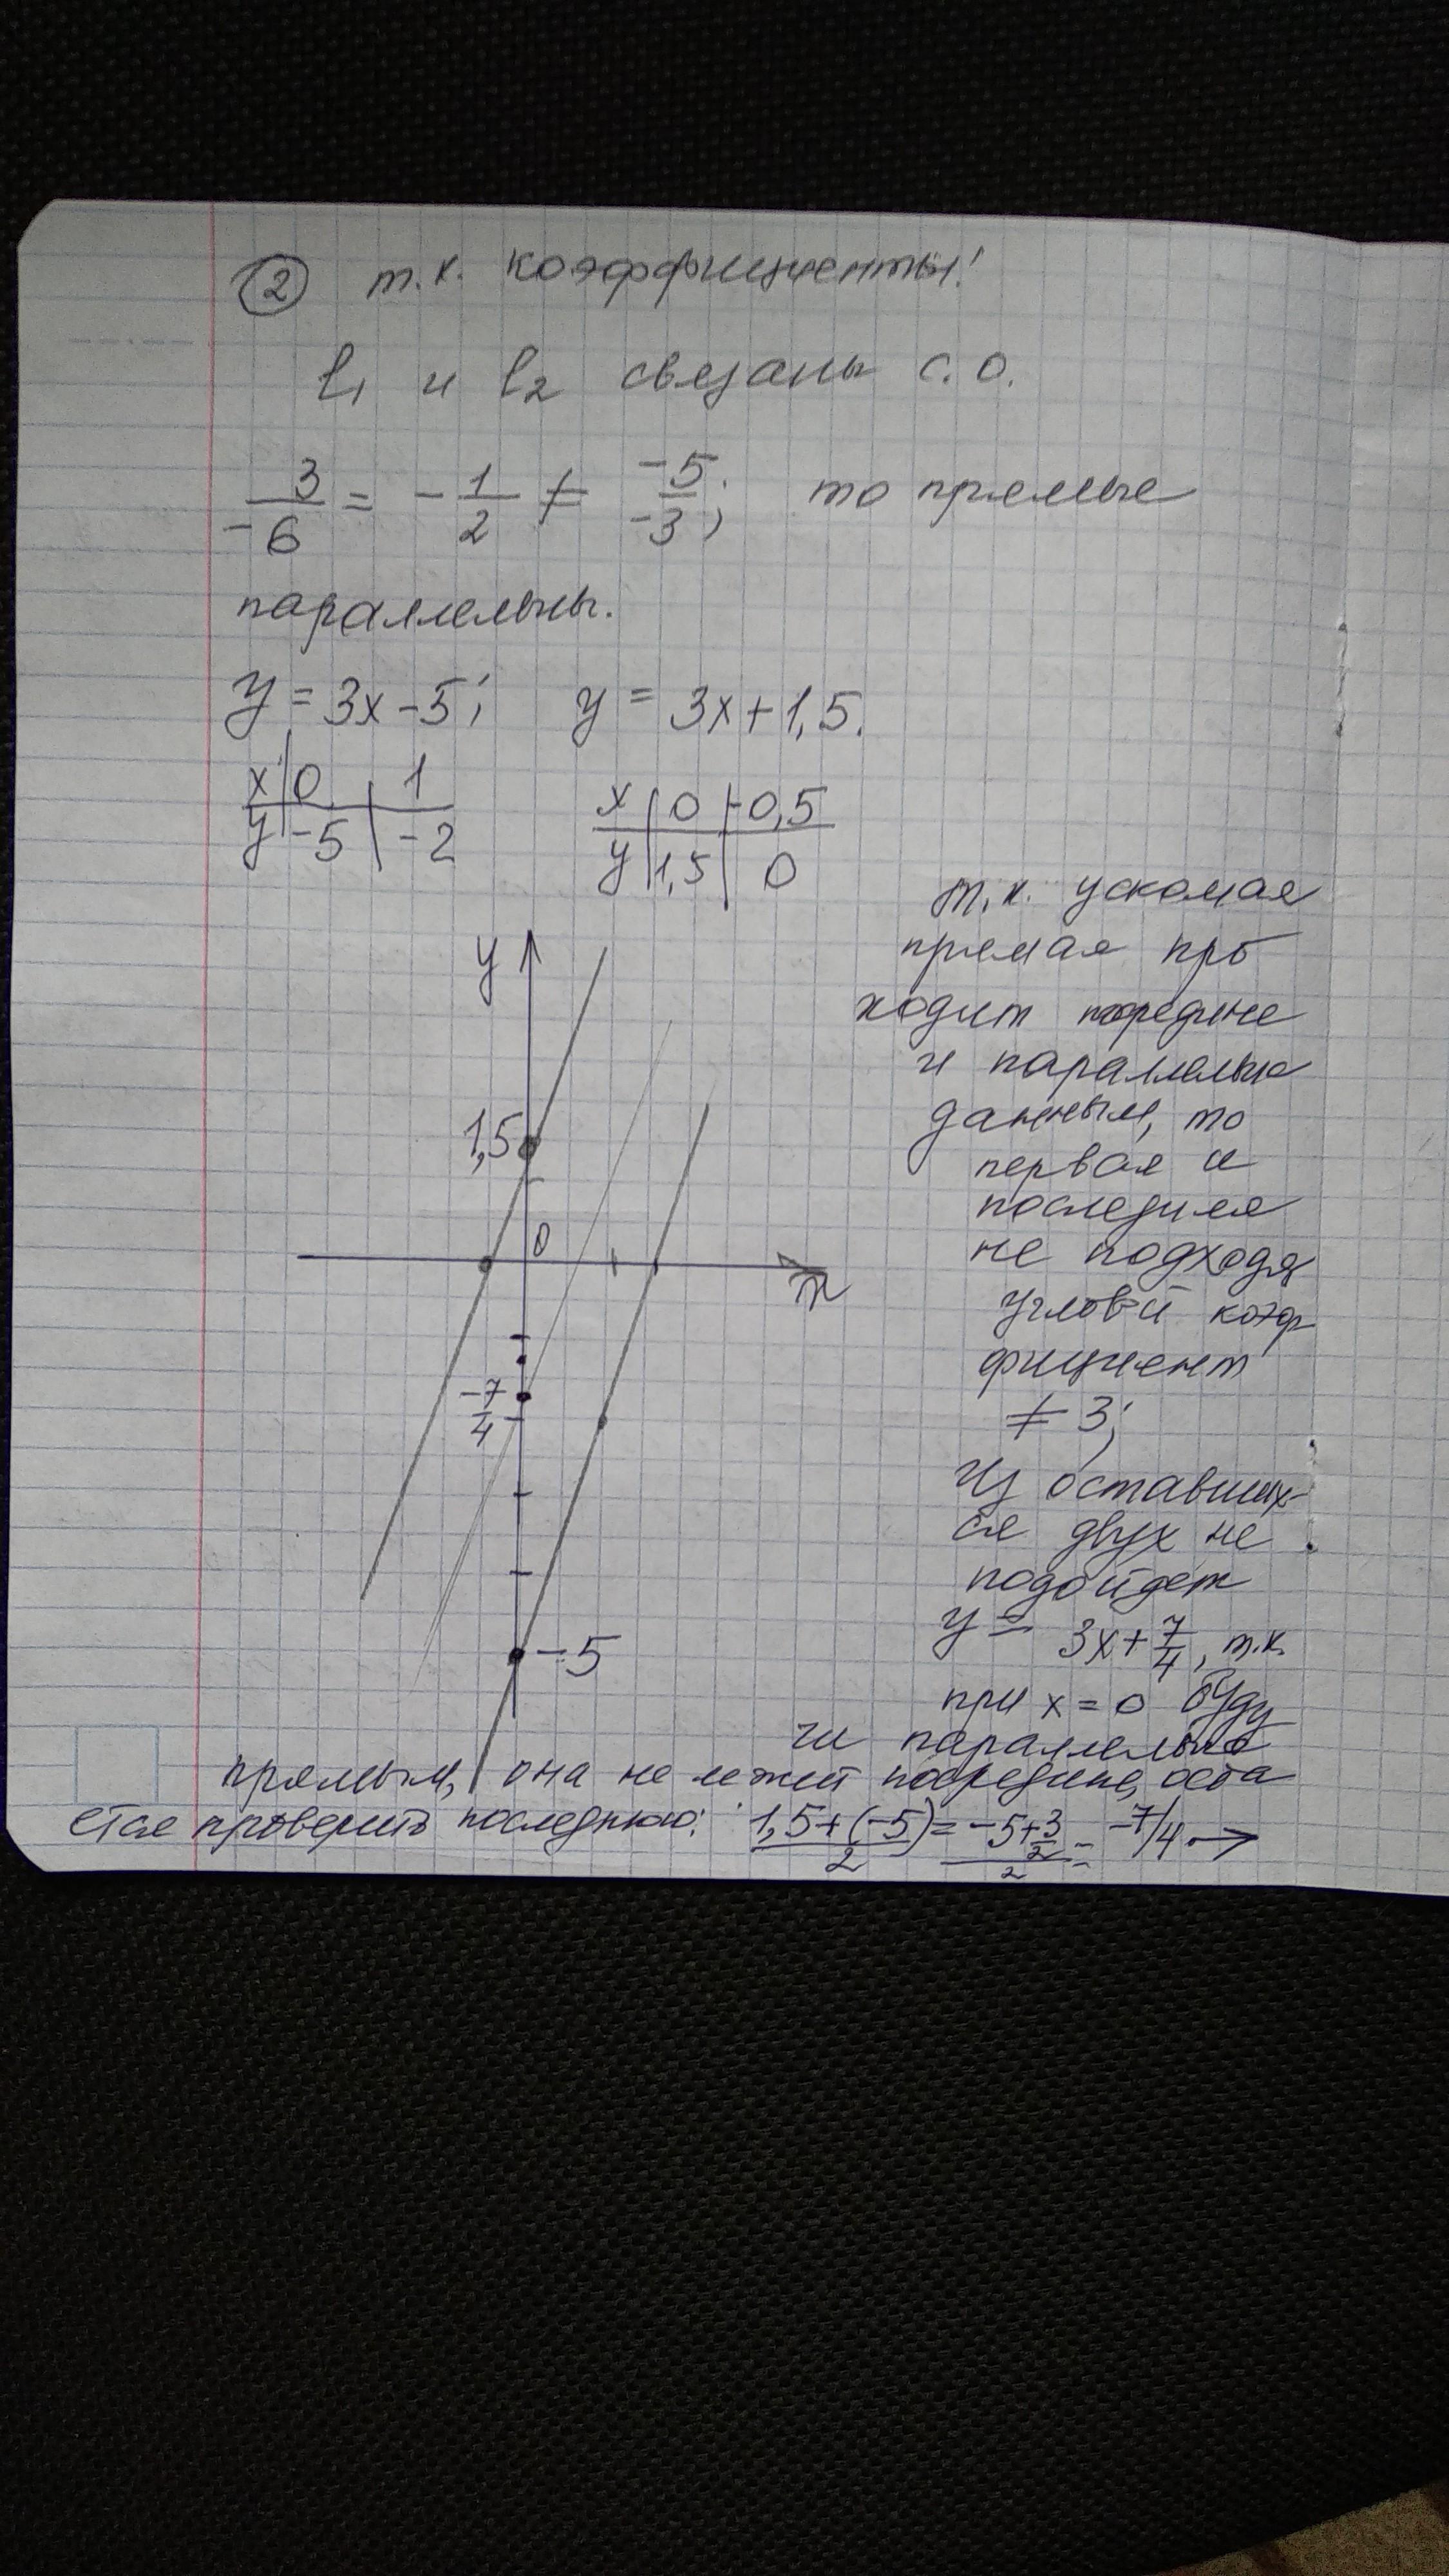 ② т.к. коэффициенты!
l₁ и l₂ связаны с.о.
3/-6 = -1/2 ≠ -5/-3; то прямые
параллельны.
y = 3x-5; y = 3x+1,5.
x | 0 | 1
y | -5 | -2
x | 0 | -0,5
y | 1,5 | 0
т.к. искомая
прямая про
ходит посредине
и параллельно
данным, то
первая и
последняя
не подходя
угловой коэф-
фициент
≠ 3;
Из оставших-
ся двух не
подойдет
y = 3x+7/4, т.к.
при x=0 буду
чи параллельно
прямым, она не лежит посредине, оста
ется проверить последнюю: (1,5+(-5))/2 = (-5+3/2)/2 = -7/4 →
y
1,5
0
x
-7/4
-5